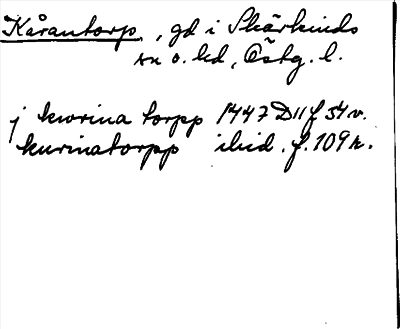 Kårantorp, gd i Skärkinds
sn o. hd, Östg. l.
j kworina torpp 1447 D11 f 54 v.
kurinatorpp ibid. f. 109 r.